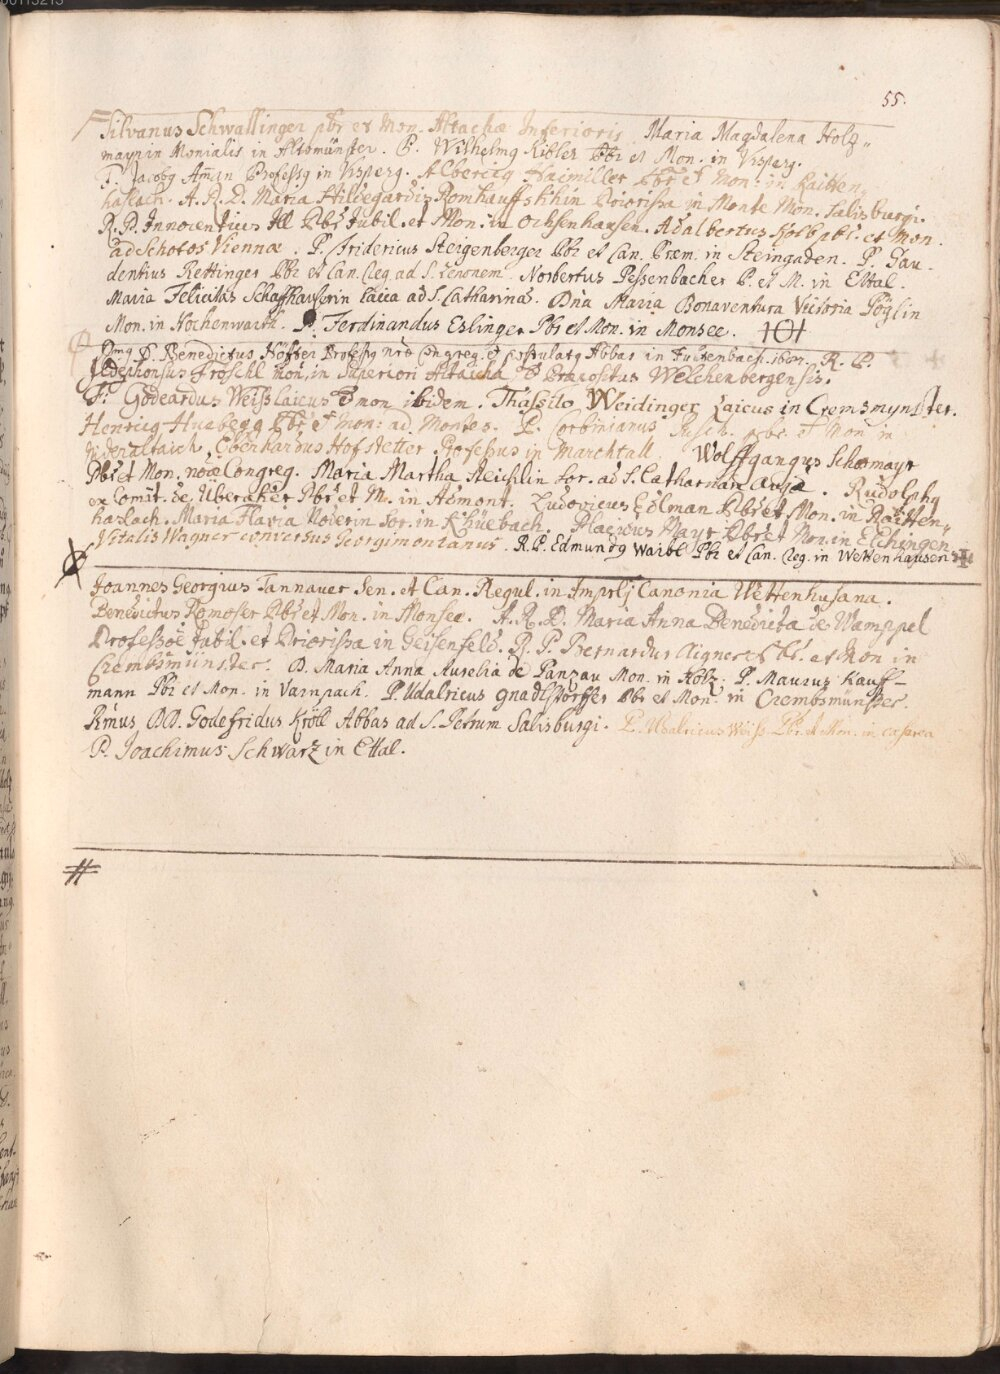 55.
Silvanus Schwallinger pbr et Mon. Altachæ Inferioris Maria Magdalena Holz„
maÿrin Monialis in Altomünster. P. Wilhelmg Kibler Pbr et Mon. in Visperg.
F. Jacobg Aman Professg in Visperg. Albericg Haimiller Pbr et Mon: in Raitten„
haslach. A. R. D. Maria Hildegardis Priorissa in Monte Mon. Salisburgi.
R. P. Innocentius Ill Pbr Jubil. et Mon. in Ochsenhausen. Adalbertus Holb pbr. et Mon.
ad Schotos Viennæ. P. Fridericus Steigenberger Pbr et Can. Prem. in Steingaden. P. Gau-
dentius Rettinger Pbr et Can. Reg ad S. Zenonem. Norbertus Pessenbacher P. et M. in Ettal.
Maria Felicitas Schaffhauserin Laica ad S. Catharinā. Dna Maria Bonaventura Victoria Pöglin
Mon. in Hochenwarth. P. Ferdinandus Eslinger Pbr et Mon. in Monsee.
P. Benedictus Höffter Professg nræ Congreg. et postulatg Abbas in R. P.
Ildephonsus Fröschl mon, in Superiori Altaicha et Præpositus Welchenbergensis.
Fr. Godeardus Weiss laicus et mon ibidem. Thassilo Weidinger Laicus in Cremsmynster.
Henricg Huebegg Pbr et mon: ad Montes. P. Corbinianus pbr. et Mon in
Nideraltaich, Eberhardus Hofstetter Professus in Marchtall. Wolffgangus Schormayr
Pbr et Mon. nræ Congreg. Maria Martha Reichlin Sor. ad S. Catharinam Aug. Rudolphg
ex Comit. de Uberakher Pbr et M. in Admont. Ludovicus Edlman Pbr et Mon. in Raitten„
haslach. Maria Flavia Noderin Sor. in Khüebach. Placidus Mayr Pbr et Mon. in Elchingen
Vitalis Wagner conversus Georgimontanus. R. P. Edmundg Waibl Pbr et Can. Reg. in Wettenhausen
Joannes Georgius Tannauer Sen. et Can. Regul. in Imprlj Canonia Wettenhusana.
Benedictus Romoser Pbr et Mon. in Monsee. A. R. D. Maria Anna Benedicta de Wamppel
Professæ Jubil. et Priorissa in Geisenfeld. R. P. Bernardus Aigner Pbr. et Mon in
Crembsmünster. D. Maria Anna Aurelia de Panzau Mon. in Holz. P. Maurus Kauff-
mann Pbr et Mon. in Varnpach. P. Udalricus Gnadlstorffer Pbr et Mon. in Crembsmünster.
Rmus DD. Godefridus Kröll Abbas ad S. Petrum Salisburgi. P. Udalricus Weiss Pbr. et Mon. in cæsarea
P. Joachimus Schwarz in Ettal.